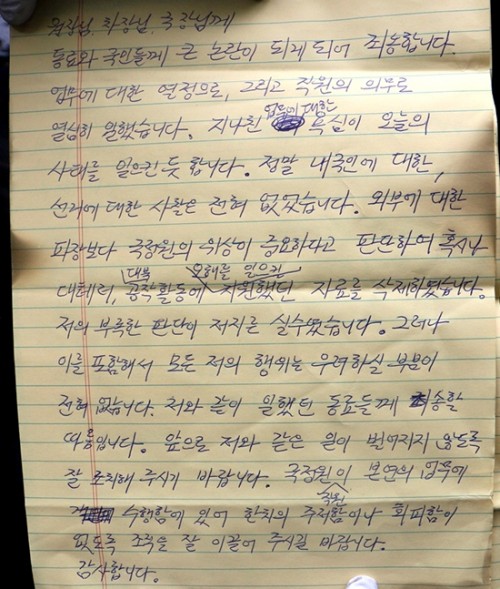 원장님, 차장님, 국장님께
동료와 국민들께 큰 논란이 되게 되어 죄송합니다.
업무에 대한 열정으로, 그리고 직원의 의무로
열심히 일했습니다. 지나친 업무에 대한 욕심이 오늘의
사태를 일으킨 듯 합니다. 정말 내국인에 대한,
선거에 대한 사찰은 전혀 없었습니다. 외부에 대한
파장보다 국정원의 위상이 중요하다고 판단하여 혹시나
대테러, 대북 공작활동에 오해를 일으킨 지원했던 자료를 삭제하였습니다.
저의 부족한 판단이 저지른 실수였습니다. 그러나
이를 포함해서 모든 저의 행위는 우려하실 부분이
전혀 없습니다. 저와 같이 일했던 동료들께 죄송할
따름입니다. 앞으로 저와 같은 일이 벌어지지 않도록
잘 조치해 주시기 바랍니다. 국정원이 본연의 업무에
수행함에 있어 한치의 주저함이나 회피함이
없도록 조직을 잘 이끌어 주시길 바랍니다.
감사합니다.